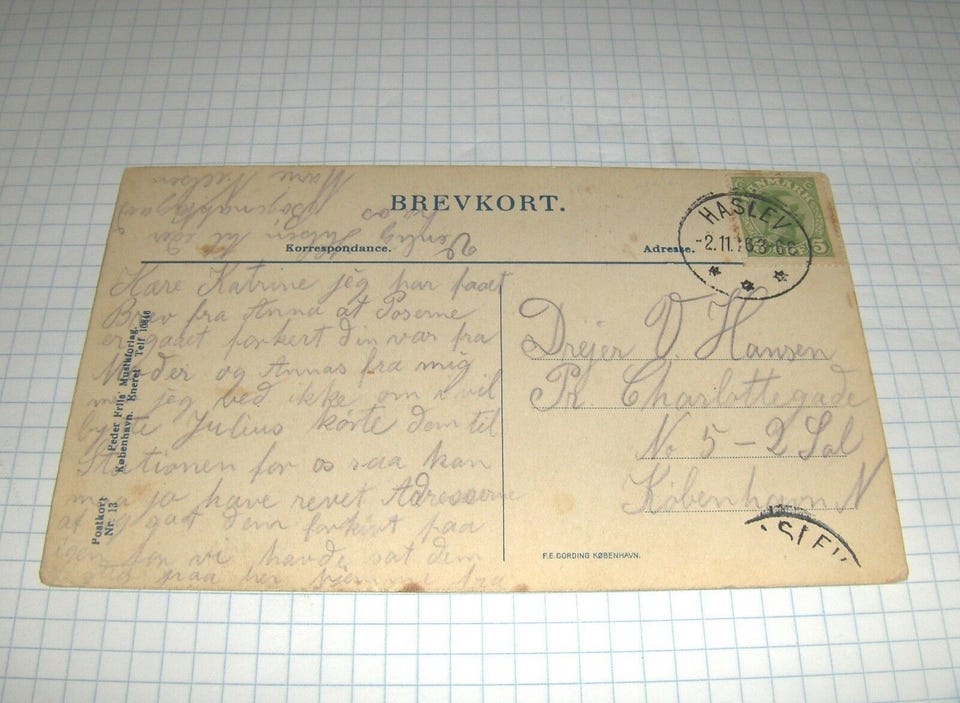 BREVKORT.
Korrespondance.
Adresse.
DANMARK
5
HASLEV
-2.11.16.3-6E
Kære Katrine jeg har faaet
Brev fra Anna at Poserne
er gaaet forkert din var fra
Moder og Annas fra mig
jeg ved ikke om I vil
bytte Julius kørte dem til
Stationen for os saa han
maa jo have revet Adresserne
af og sat dem forkert paa
igen for vi havde sat dem
paa her hjemme fra
Venlig Hilsen til eder
fra os
Marie Nielsen
Drejer V. Hansen
Pr. Charlottegade
No 5 - 2 Sal
København N
SLEV
Postkort
Nr. 13
Peder Friis' Musikforlag.
København. Eneret Telf 10846
F.E.GORDING KØBENHAVN.